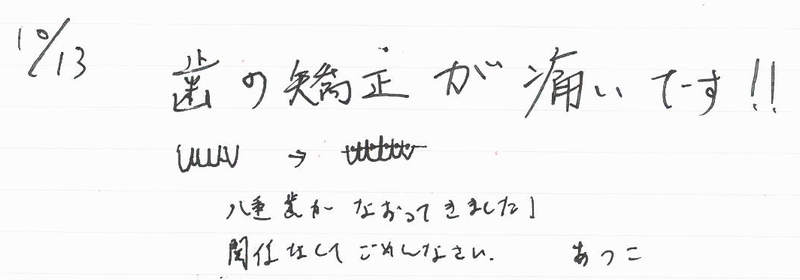 10/13
歯の矯正が痛いでーす!!
八重歯がなおってきました!
関係なくてごめんなさい.
あつこ